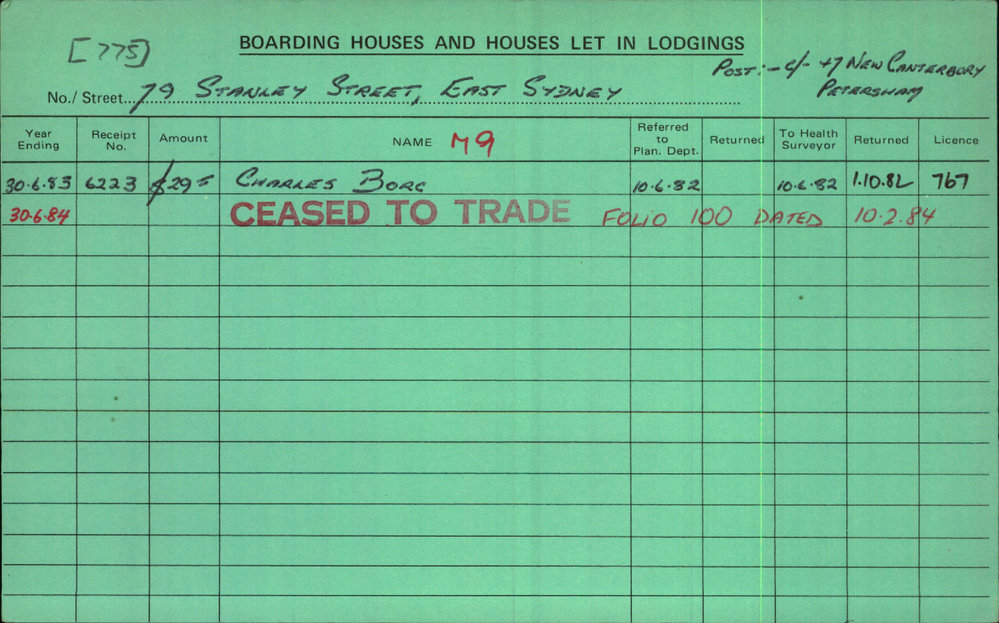 [775]
BOARDING HOUSES AND HOUSES LET IN LODGINGS
Post:- c/- 47 New Canterbury
Petersham
No./ Street. 79 Stanley Street, East Sydney
Year Ending Receipt No. Amount NAME M9 Referred to Plan. Dept. Returned To Health Surveyor Returned Licence
30.6.83 6223 $29= Charles Borg 10.6.82 10.6.82 1.10.82 767
30.6.84 CEASED TO TRADE Folio 100 Dated 10.2.84